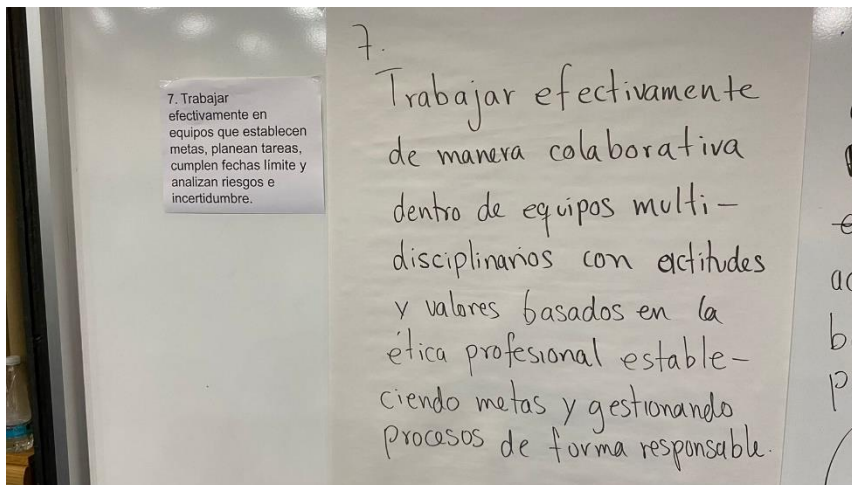 7. Trabajar
efectivamente en
equipos que establecen
metas, planean tareas,
cumplen fechas límite y
analizan riesgos e
incertidumbre.
7.
Trabajar efectivamente
de manera colaborativa
dentro de equipos multi-
disciplinarios con actitudes
y valores basados en la
ética profesional estable-
ciendo metas y gestionando
procesos de forma responsable.